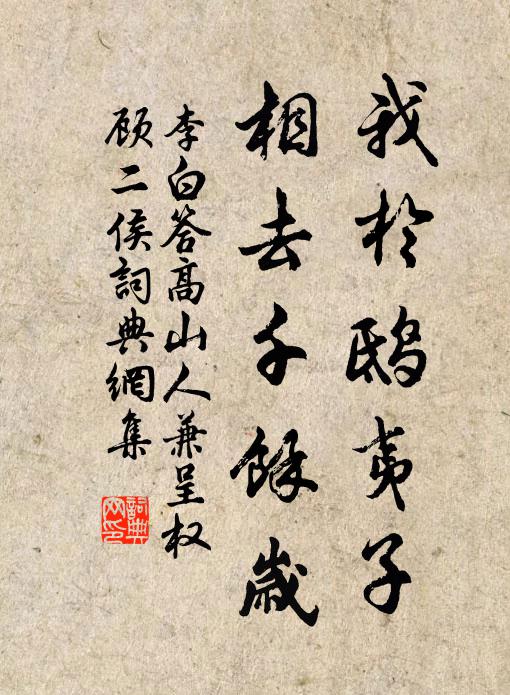 我於鸱夷子
相去千餘歲
李白答高山人兼呈权
顾二侯詞典網集
詞典
网印